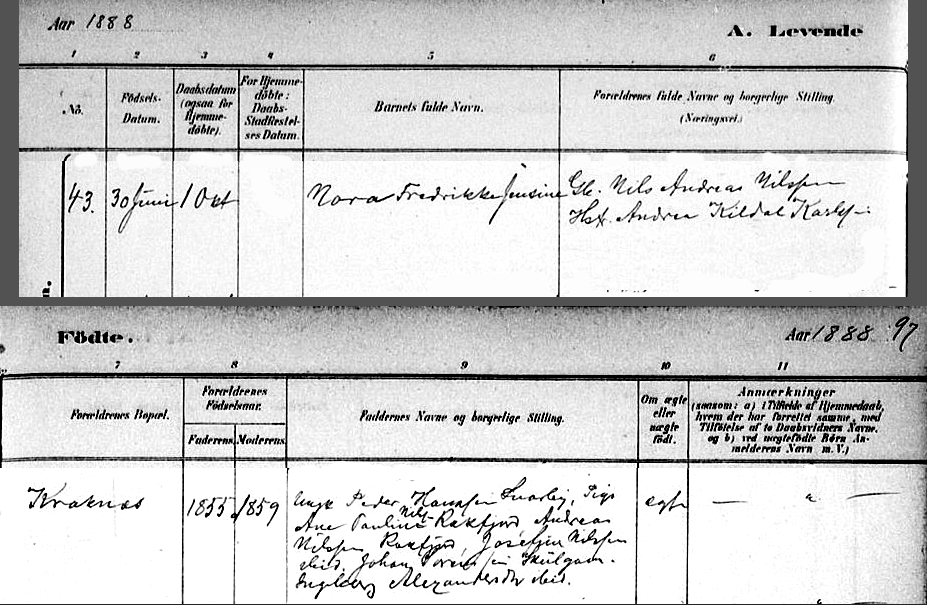 Aar 1888
A. Levende
1 2 3 4 5 6
No. Födsels-Datum. Daabsdatum (ogsaa for Hjemme-döbte). For Hjemme-döbte: Daabs-Stadfæstel-ses Datum. Barnets fulde Navn. Forældrenes fulde Navne og borgerlige Stilling. (Næringsvei.)
43. 30 Juni 1 Okt Nora Fredrikke Jensine Gb. Nils Andreas Nilssen
Hst. Andrea Kildal Karls
n.
Födte. Aar 1888 97
7 8 9 10 11
Forældrenes Bopæl. Forældrenes Födselsaar. Faderens. Moderens. Faddernes Navne og borgerlige Stilling. Om ægte eller uægte födt. Anmærkninger (saasom: a) i Tilfælde af Hjemmedaab, hvem der har forrettet samme, med Tilföielse af to Daabsvidners Navne, og b) ved uægtefödte Börn An-melderens Navn m. V.)
Kraknæs 1855 1859 Ungk Peder Hansen , Pige ægte — " —
Ane Pauline Nils Rakfjord, Andreas
Nilssen Rakfjord, Josefine Nilssen
ibid. Johan Skulgam.
Ingeborg Alexandersdr ibid.